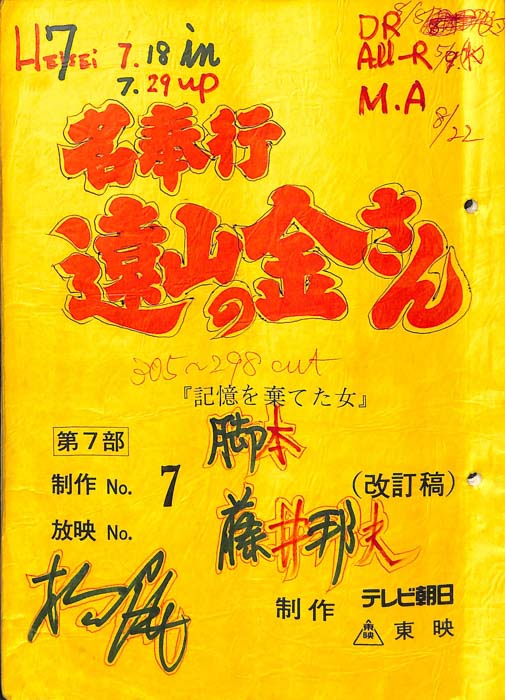 HEISEI 7 7.18 in
7.29 up
DR 8/5
All-R
M.A
8/22
名奉行
遠山の金さん
305~298 cut
『記憶を棄てた女』
脚本
第7部
制作 No. 7
(改訂稿)
放映 No.
藤井邦夫
制作 テレビ朝日
東映 東映